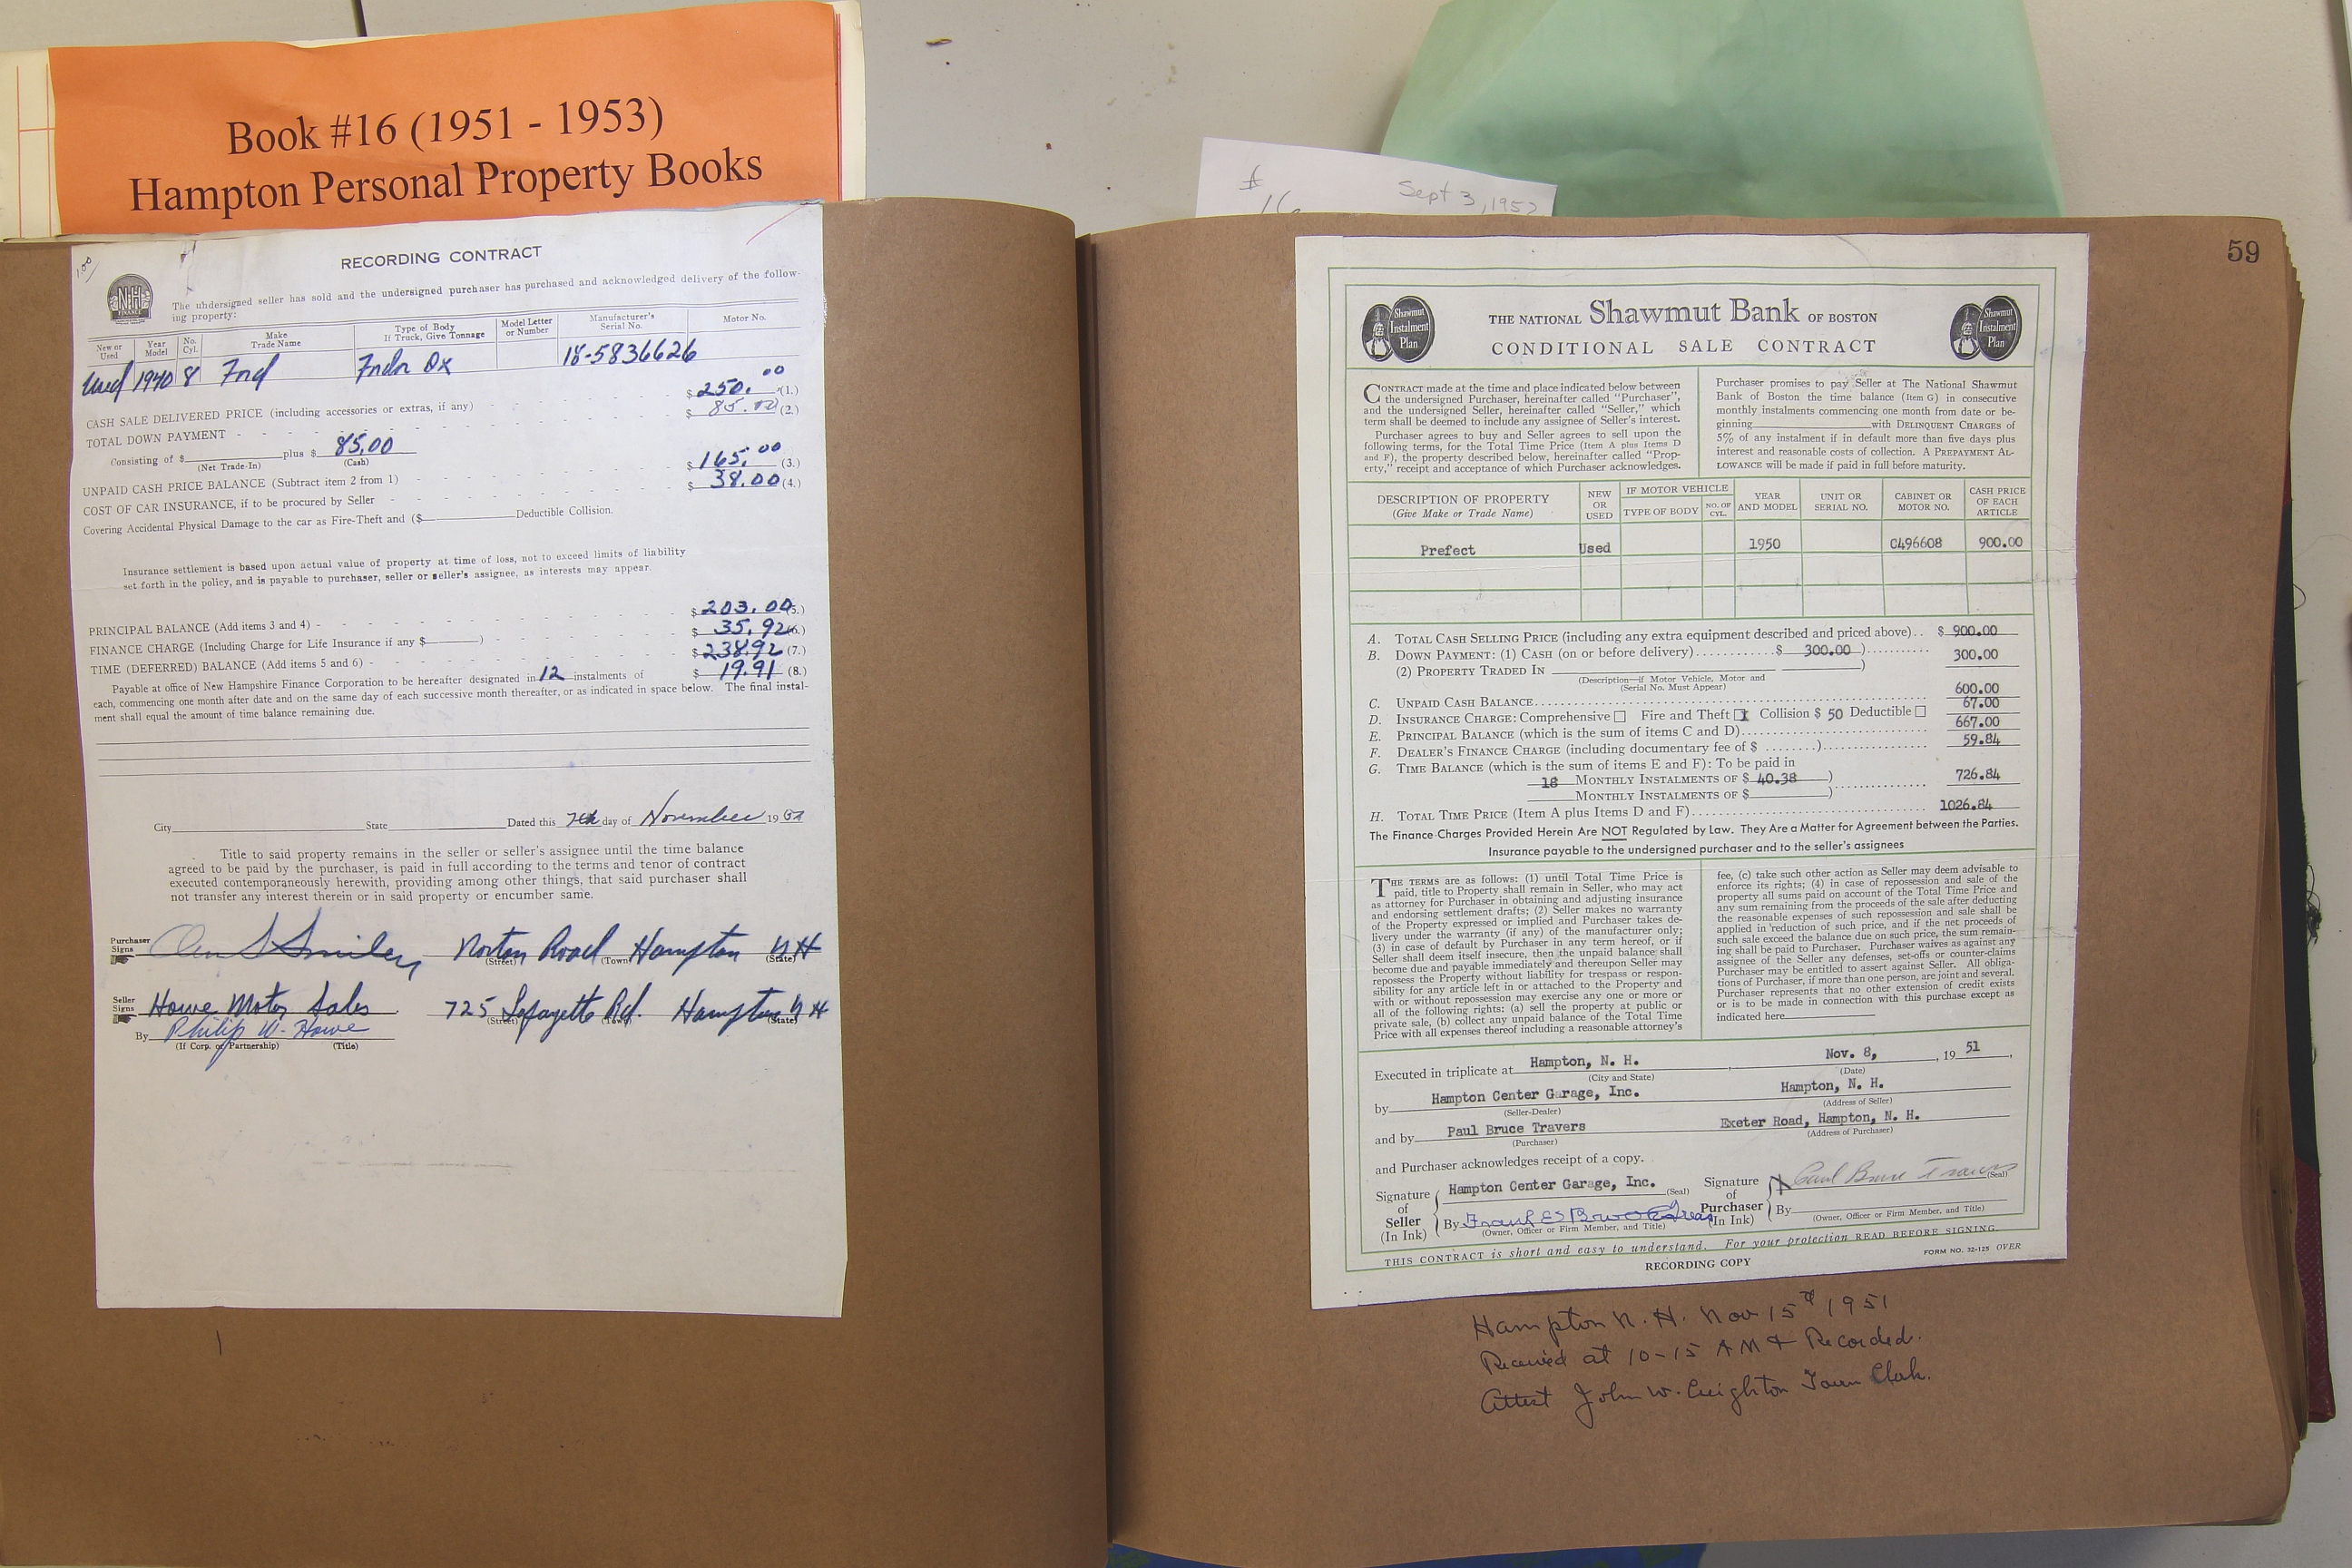 Book #16 (1951 - 1953)
Hampton Personal Property Books
Sept 3, 1952
#
16
59
100
RECORDING CONTRACT
NH
FINANCE
The undersigned seller has sold and the undersigned purchaser has purchased and acknowledged delivery of the follow-
ing property:
New or Used Year Model No. Cyl. Make Trade Name Type of Body If Truck, Give Tonnage Model Letter or Number Manufacturer's Serial No. Motor No.
Used 1940 8 Ford Fordor Dx 18-5836626
CASH SALE DELIVERED PRICE (including accessories or extras, if any) - - - - $ 250.00 (1.)
TOTAL DOWN PAYMENT - - - - $ 85.00 (2.)
Consisting of $ (Net Trade-In) plus $ 85.00 (Cash)
UNPAID CASH PRICE BALANCE (Subtract item 2 from 1) - - - - $ 165.00 (3.)
COST OF CAR INSURANCE, if to be procured by Seller - - - - $ 38.00 (4.)
Covering Accidental Physical Damage to the car as Fire-Theft and ($ Deductible Collision.
Insurance settlement is based upon actual value of property at time of loss, not to exceed limits of liability
set forth in the policy, and is payable to purchaser, seller or seller's assignee, as interests may appear.
PRINCIPAL BALANCE (Add items 3 and 4) - - - - $ 203.00 (5.)
FINANCE CHARGE (Including Charge for Life Insurance if any $ ) - - - - $ 35.92 (6.)
TIME (DEFERRED) BALANCE (Add items 5 and 6) - - - - $ 238.92 (7.)
Payable at office of New Hampshire Finance Corporation to be hereafter designated in 12 instalments of $ 19.91 (8.)
each, commencing one month after date and on the same day of each successive month thereafter, or as indicated in space below. The final instal-
ment shall equal the amount of time balance remaining due.
City State Dated this 7th day of November 1951
Title to said property remains in the seller or seller's assignee until the time balance
agreed to be paid by the purchaser, is paid in full according to the terms and tenor of contract
executed contemporaneously herewith, providing among other things, that said purchaser shall
not transfer any interest therein or in said property or encumber same.
Purchaser Signs Smiley Norton Road Hampton N H
(Street) (Town) (State)
Seller Signs Howe Motor Sales 725 Lafayette Rd. Hampton N H
(Street) (Town) (State)
By Philip W. Howe
(If Corp. or Partnership) (Title)
Shawmut Instalment Plan
THE NATIONAL Shawmut Bank OF BOSTON
CONDITIONAL SALE CONTRACT
Shawmut Instalment Plan
CONTRACT made at the time and place indicated below between
the undersigned Purchaser, hereinafter called "Purchaser",
and the undersigned Seller, hereinafter called "Seller," which
term shall be deemed to include any assignee of Seller's interest.
Purchaser agrees to buy and Seller agrees to sell upon the
following terms, for the Total Time Price (Item A plus Items D
and F), the property described below, hereinafter called "Prop-
erty," receipt and acceptance of which Purchaser acknowledges.
Purchaser promises to pay Seller at The National Shawmut
Bank of Boston the time balance (Item G) in consecutive
monthly instalments commencing one month from date or be-
ginning with DELINQUENT CHARGES of
5% of any instalment if in default more than five days plus
interest and reasonable costs of collection. A PREPAYMENT AL-
LOWANCE will be made if paid in full before maturity.
DESCRIPTION OF PROPERTY (Give Make or Trade Name) NEW OR USED IF MOTOR VEHICLE TYPE OF BODY NO. OF CYL. YEAR AND MODEL UNIT OR SERIAL NO. CABINET OR MOTOR NO. CASH PRICE OF EACH ARTICLE
Prefect Used 1950 C496608 900.00
A. TOTAL CASH SELLING PRICE (including any extra equipment described and priced above).. $ 900.00
B. DOWN PAYMENT: (1) CASH (on or before delivery)............$ 300.00 )........... 300.00
(2) PROPERTY TRADED IN )
(Description—if Motor Vehicle, Motor and
(Serial No. Must Appear)
C. UNPAID CASH BALANCE.................... 600.00
D. INSURANCE CHARGE: Comprehensive □ Fire and Theft X Collision $ 50 Deductible □ 67.00
E. PRINCIPAL BALANCE (which is the sum of items C and D).................... 667.00
F. DEALER'S FINANCE CHARGE (including documentary fee of $ ........).................... 59.84
G. TIME BALANCE (which is the sum of items E and F): To be paid in
18 MONTHLY INSTALMENTS OF $ 40.38 ) 726.84
MONTHLY INSTALMENTS OF $ )
H. TOTAL TIME PRICE (Item A plus Items D and F).................... 1026.84
The Finance Charges Provided Herein Are NOT Regulated by Law. They Are a Matter for Agreement between the Parties.
Insurance payable to the undersigned purchaser and to the seller's assignees
THE TERMS are as follows: (1) until Total Time Price is
paid, title to Property shall remain in Seller, who may act
as attorney for Purchaser in obtaining and adjusting insurance
and endorsing settlement drafts; (2) Seller makes no warranty
of the Property expressed or implied and Purchaser takes de-
livery under the warranty (if any) of the manufacturer only;
(3) in case of default by Purchaser in any term hereof, or if
Seller shall deem itself insecure, then the unpaid balance shall
become due and payable immediately and thereupon Seller may
repossess the Property without liability for trespass or respon-
sibility for any article left in or attached to the Property and
with or without repossession may exercise any one or more or
all of the following rights: (a) sell the property at public or
private sale, (b) collect any unpaid balance of the Total Time
Price with all expenses thereof including a reasonable attorney's
fee, (c) take such other action as Seller may deem advisable to
enforce its rights; (4) in case of repossession and sale of the
property all sums paid on account of the Total Time Price and
any sum remaining from the proceeds of the sale after deducting
the reasonable expenses of such repossession and sale shall be
applied in reduction of such price, and if the net proceeds of
such sale exceed the balance due on such price, the sum remain-
ing shall be paid to Purchaser. Purchaser waives as against any
assignee of the Seller any defenses, set-offs or counter-claims
Purchaser may be entitled to assert against Seller. All obliga-
tions of Purchaser, if more than one person, are joint and several.
Purchaser represents that no other extension of credit exists
or is to be made in connection with this purchase except as
indicated here
Executed in triplicate at Hampton, N. H. , Nov. 8, , 19 51 .
(City and State) (Date)
by Hampton Center Garage, Inc. Hampton, N. H.
(Seller-Dealer) (Address of Seller)
and by Paul Bruce Travers Exeter Road, Hampton, N. H.
(Purchaser) (Address of Purchaser)
and Purchaser acknowledges receipt of a copy.
Signature of Seller (In Ink) Hampton Center Garage, Inc. (Seal)
By Frank E Brooks Treas
(Owner, Officer or Firm Member, and Title)
Signature of Purchaser (In Ink) X Paul Bruce Travers (Seal)
By
(Owner, Officer or Firm Member, and Title)
THIS CONTRACT is short and easy to understand. For your protection READ BEFORE SIGNING.
FORM NO. 32-125 OVER
RECORDING COPY
Hampton N. H. Nov 15th 1951
Received at 10-15 AM & Recorded.
Attest John W. Creighton Town Clerk.